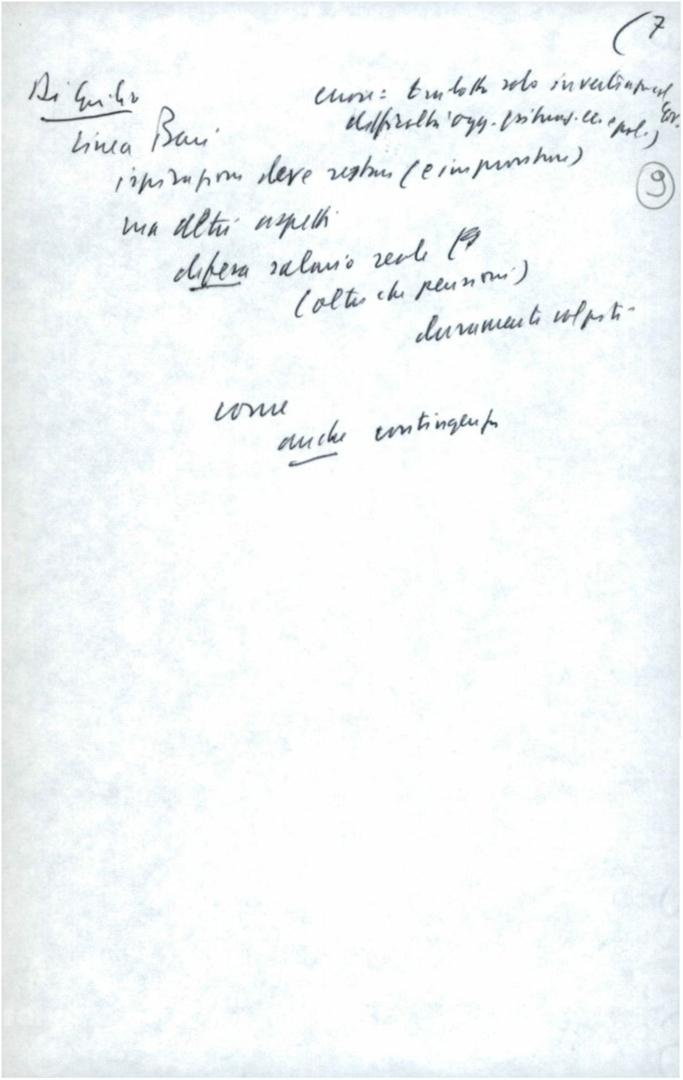 (7
Di Giulio
linea Bari
errore: trulotta solo investimenti
difficoltà ogg. situaz. ec. e pol.)
9
ispirazione deve restare (e impostare)
ma altri aspetti
difesa salario reale (
(oltre che pensioni)
duramente colpiti
come
anche contingenza